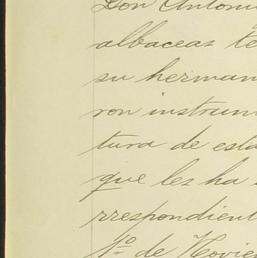 Don Antoni
albaceas te
su herman
ron instrum
tura de esta
que les ha
rrespondient
1º de Novie